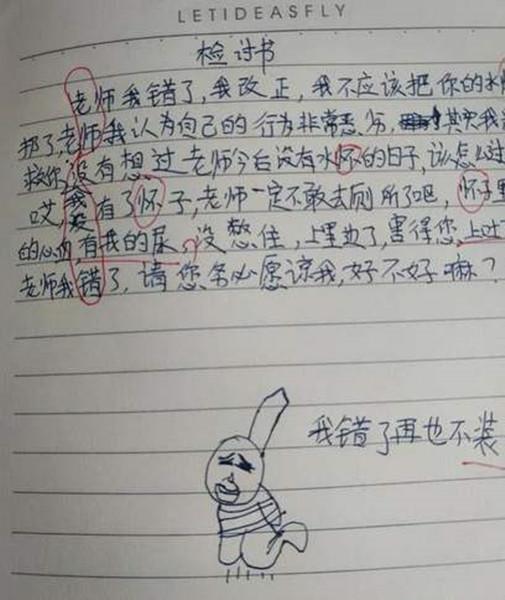 LETIDEASFLY
检讨书
老师我错了,我改正,我不应该把你的水
扔了老师我认为自己的行为非常恶劣,其实我
救你,没有想过老师今后没有水怀的日子,该怎么过
哎,没有了怀子,老师一定不敢去厕所了吧,怀子里
的心血,有我的尿,没憋住,上里边了,害得您,上吐下
老师我错了,请您务必愿谅我,好不好嘛?
我错了再也不装